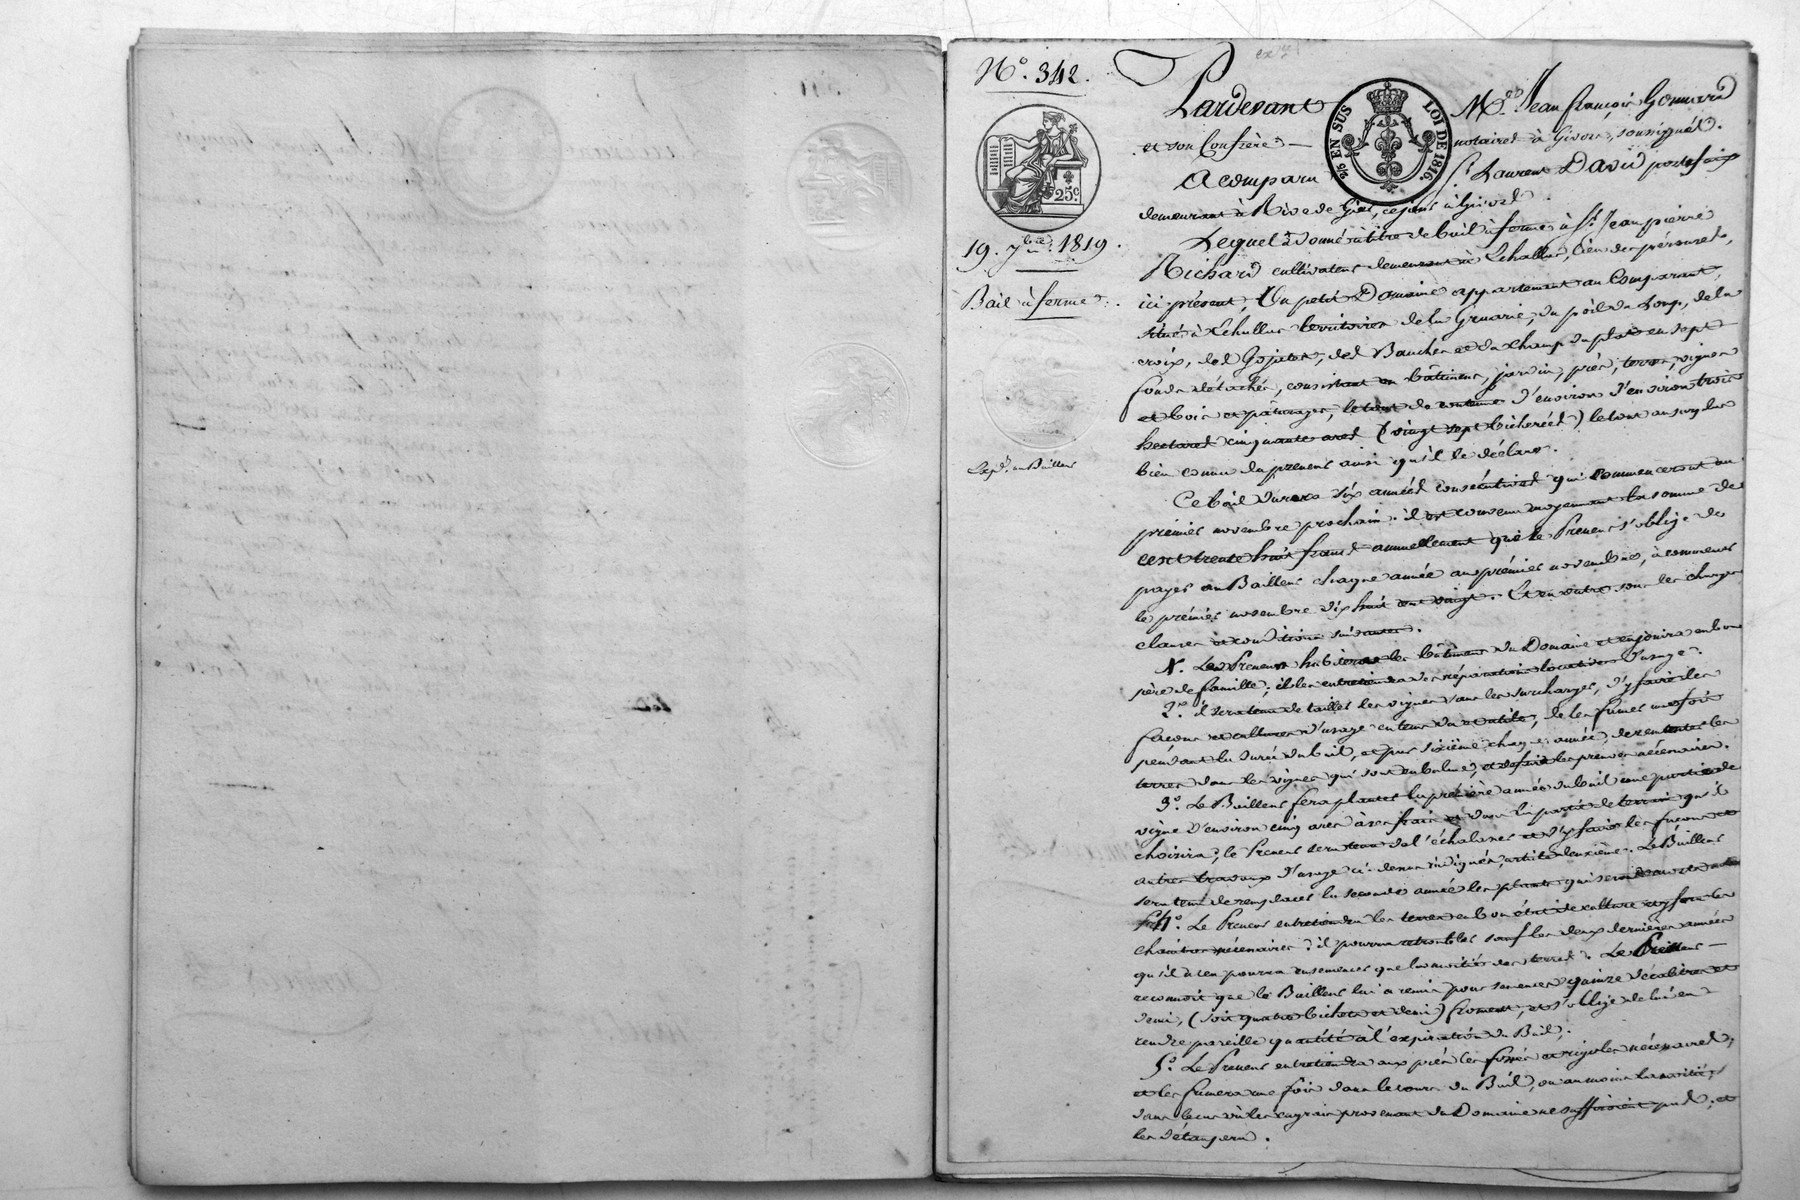 N° 342.
25c.
19. 7bre. 1819.
Bail à ferme.
Expon. au Bailleur
2/5 EN SUS LOI DE 1816.
Pardevant Me. Jean françois Gonnard
et son Confrère notaires à Givors, soussignés.
A comparu Sr. Laurent David portefaix
demeurant à Rive de Gier, ce jour à Givors.
Lequel a donné à titre de bail à ferme à Sr. Jean pierre
Richard cultivateur demeurant à Echallas, lieu de
ici présent, Un petit Domaine appartenant au Comparant,
situé à Echallas territoires de la du poil du Loup, de la
croix, des des et du champ du plat en sept
fonds détachés, consistant en bâtiment, jardin, prés, terres, vignes
et bois et pâturages, le tout de contenue d'environ d'environ trois
hectares cinquante ares (vingt sept bicherées) le tout au surplus
bien connu du preneur ainsi qu'il le déclare.
Ce bail durera six années consécutives qui commenceront au
premier novembre prochain. il est convenu moyennant la somme de
cent trente huit francs annuellement que le Preneur s'oblige de
payer au Bailleur chaque année au premier novembre, à commencer
le premier novembre dix huit cent vingt. Et en outre sous les charges
clauses et conditions suivantes.
1°. Le Preneur habitera les bâtiments du Domaine et en jouira en bon
père de famille; il les entretiendra des réparations locatives d'usage.
2°. il sera tenu de tailler les vignes sans les surcharger, d'y faire les
façons et cultures d'usage en temps de les fumer une fois
pendant la durée du bail, et par sixième chaque année, de remonter les
terres dans les vignes qui sont en balme, et de faire les preuves nécessaires.
3°. Le Bailleur fera planter la première année du bail une partie de
vigne d'environ cinq ares à ses frais dans la partie de terrain qu'il
choisira, le Preneur sera tenu de l'échalasser et d'y faire les façons et
autres travaux d'usage ci-dessus indiqués, article deuxième. Le Bailleur
sera tenu de remplacer la seconde année les plants qui seraient
4°. Le Preneur entretiendra les terres en bon état de culture et y fera les
nécessaires; il pourra sauf les deux dernières années
qu'il n'en pourra ensemencer que la moitié des terres. Le Preneur
reconnoit que le Bailleur lui a remis pour semences quinze décalitres et
demi, (soit quatre bichets et demi) froment, et s'oblige de lui en
rendre pareille quantité à l'expiration du Bail;
5°. Le Preneur entretiendra aux prés les fossés et rigoles nécessaires;
et les fumera une fois dans le cours du Bail, ou au moins la moitié,
dans le cas où les engrais provenant du Domaine ne suffiroient pas; et
les étaupera.